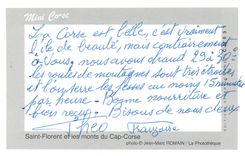 Mini Corse
La Corse est belle, c'est vraiment
l'île de beauté, mais contrairement
à vous nous avons grand 29 à 30
les routes de montagnes sont très étroites
et l'on serre les fesses au moins 15 minutes
par heure - Bonne nourriture et
bien reçu - Bisous de nous deux
Théo Françoise
Saint-Florent et les monts du Cap-Corse
photo © Jean-Marc ROMAIN / La Photothèque